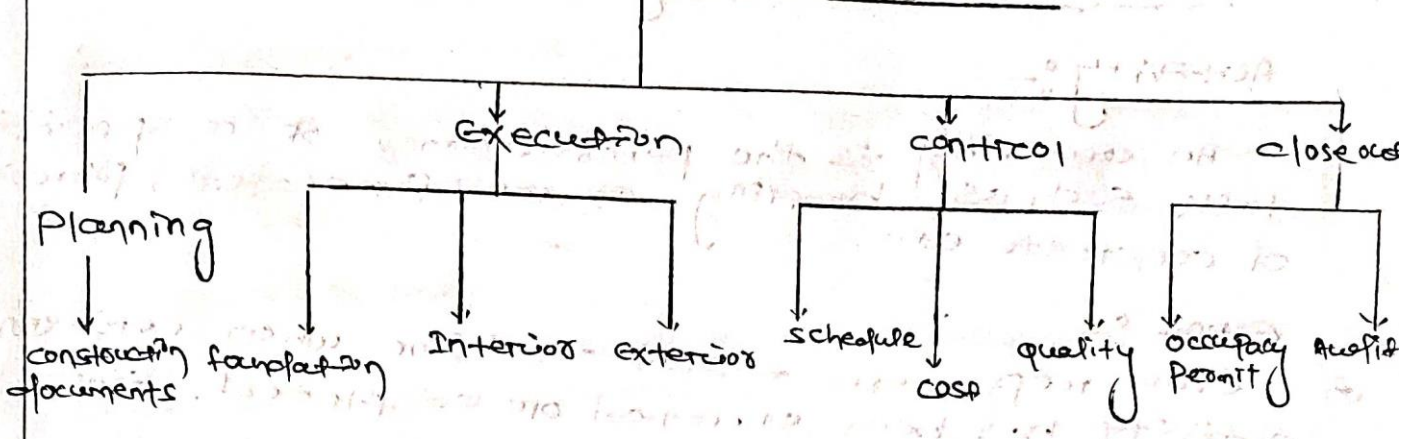 Execution
control
closeout
Planning
construction
documents.
foundation
Interior
exterior
schedule
cost
quality
occupacy
Permit
Audit